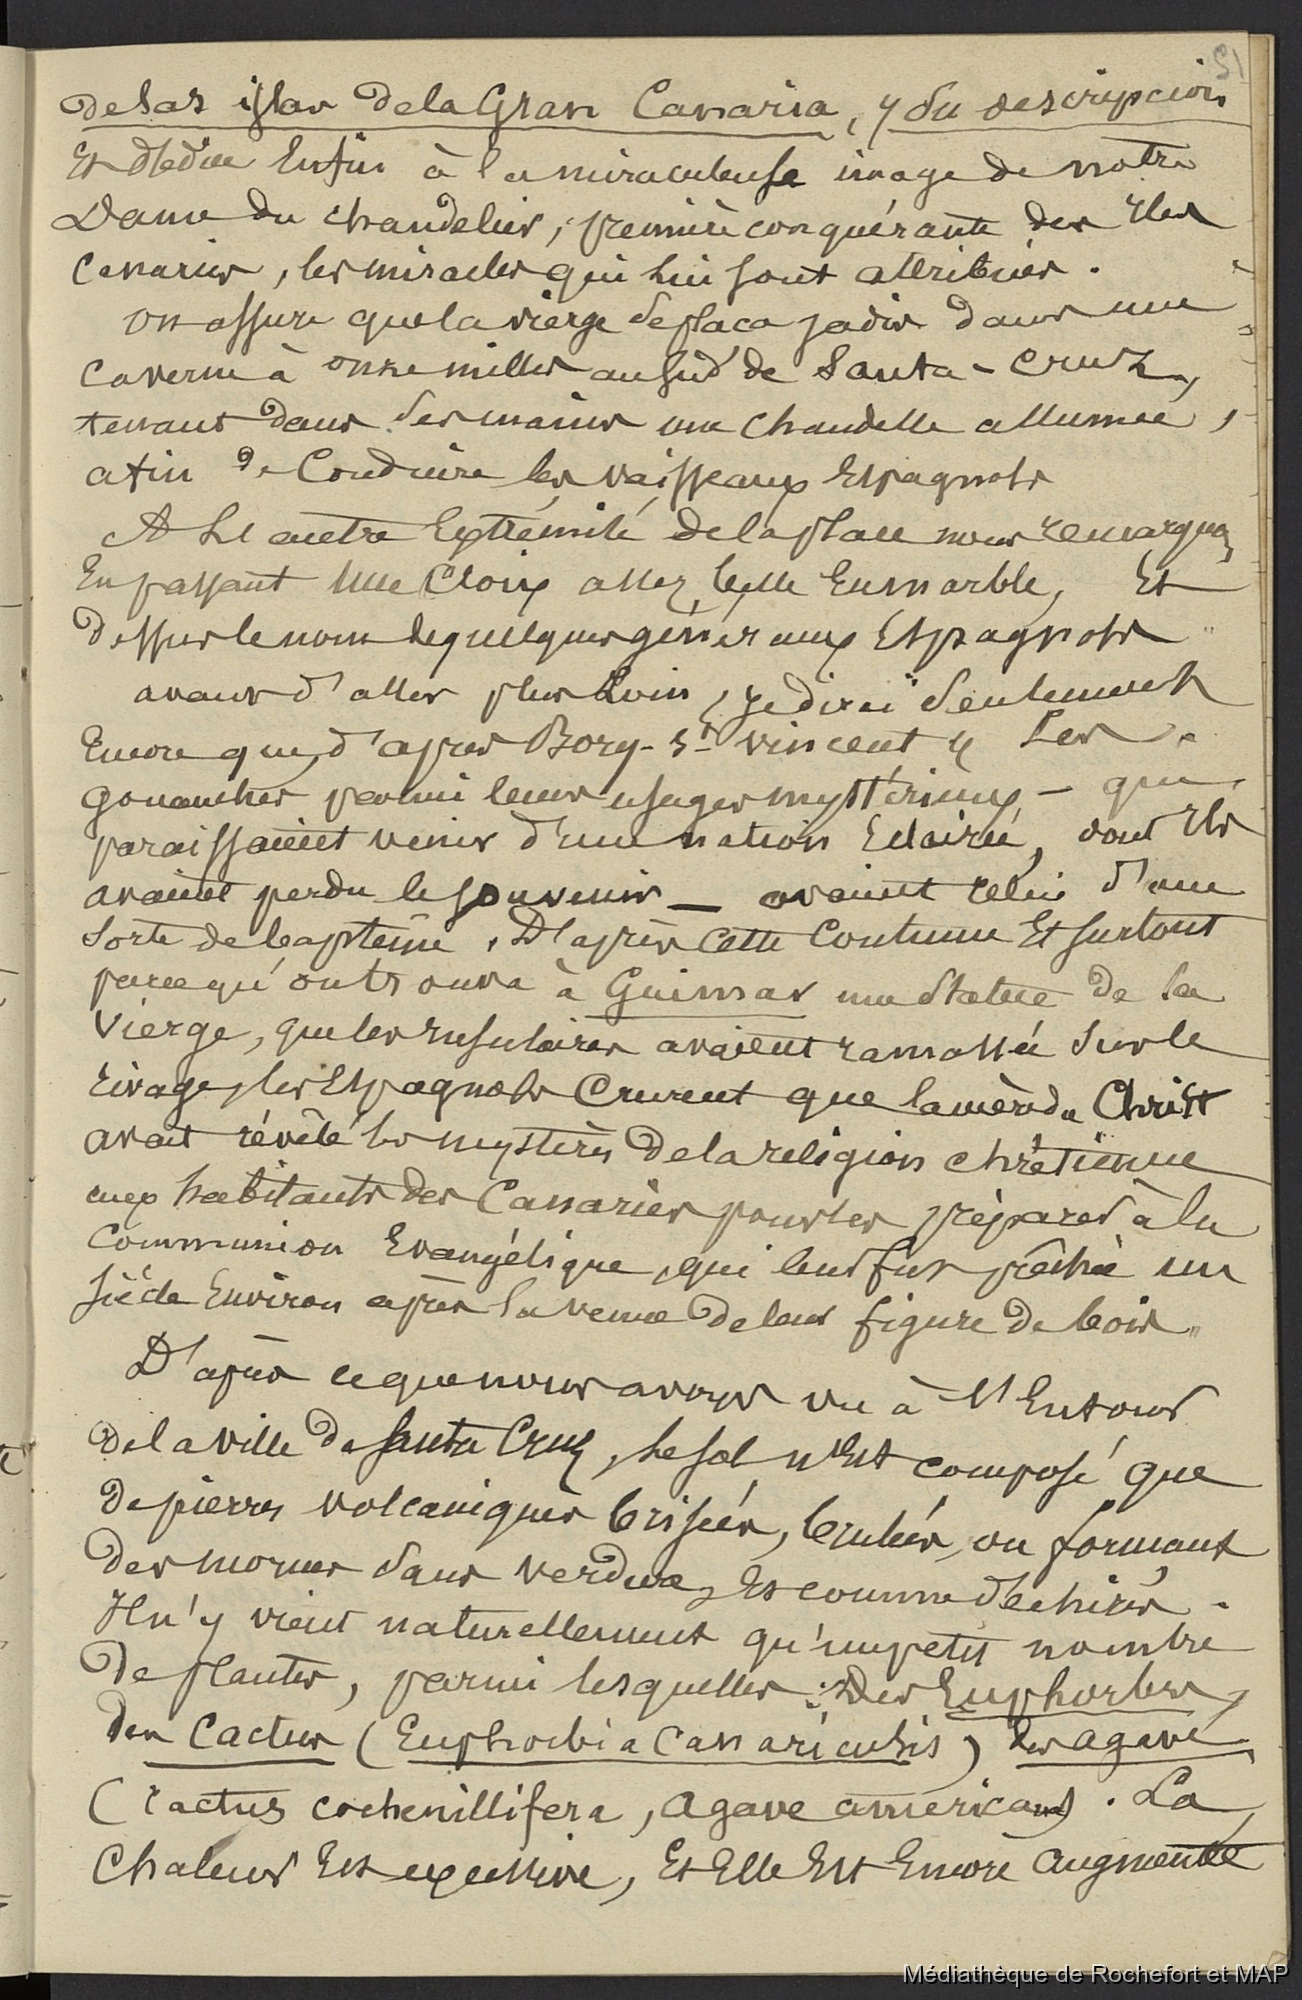 51
de las islas de la Gran Canaria, y su descripcion
Et dédiée Enfin à la miraculeuse image de notre
Dame du chandelier, première conquérante des Iles
Canaries, les miracles qui lui sont attribués.
on assure que la vierge se plaça jadis dans une
caverne à onze milles au sud de Santa-Cruz,
tenant dans ses mains une chandelle allumée,
afin de Conduire les vaisseaux Espagnols
A l'autre Extrémité de la place nous remarquons
En passant une Croix assez belle En marbre, Et
dessus le nom de quelques généraux Espagnols
avant d'aller plus Loin, je dirai seulement
Encore que, d'après Bory-St vincent " Les
gouanches parmi leurs usages mystérieux - qui
paraissaient venir d'une nation Eclairée, dont ils
avaient perdu le souvenir - avaient celui d'une
sorte de baptême. D'après cette Coutume Et surtout
parce qu'on trouva à Guimar une statue de la
vierge, que les Insulaires avaient ramassée sur le
rivage, les Espagnols Crurent que la mère du Christ
avait révélé les mystères de la religion chrétienne
aux habitants des Canaries pour les préparer à la
Communion Evangélique, qui leur fut prêchée un
siècle Environ après la venue de leur figure de bois "
D'après ce que nous avons vu à l'Entour
de la ville de Santa Cruz, le sol n'Est composé que
de pierres volcaniques brisées, brulées, ou formant
des mornes sans verdure, Et comme déchirés.
Il n'y vient naturellement qu'un petit nombre
de plantes, parmi lesquelles : des Euphorbes,
des Cactus (Euphorbia Canariensis) des agave
(Cactus cochenillifera, agave americana). La
Chaleur Est excessive, Et Elle Est Encore augmentée
Médiathèque de Rochefort et MAP